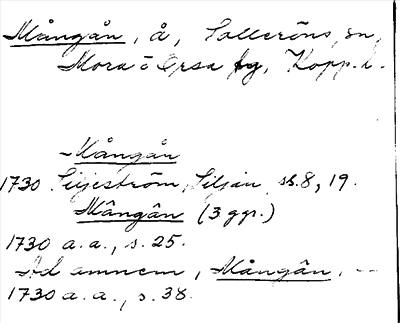 Mångån, å, Solleröns sn,
Mora o Orsa fg, Kopp. l.
~Mångån
1730 Liljeström, Siljan ss. 8, 19.
Mångån (3 ggr.)
1730 a. a., s. 25.
Ad amnem, Mångån, --
1730 a. a., s. 38.